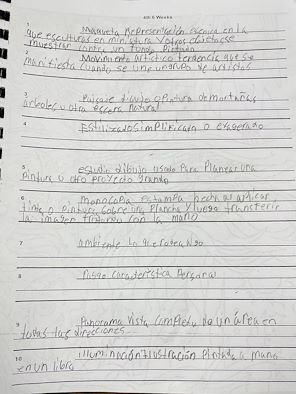 4th 6 Weeks
1 Maqueta Representación escénica en la
que esculturas en miniatura y otros objetos se
muestran contra un fondo pintado
2 Movimiento artístico tendencia que se
manifiesta cuando se une un grupo de artistas
3 Paisaje dibujo o Pintura de montañas
árboles u otra escena natural
4 Estilizado simplificado o exagerado
5 estudio dibujo usado Para Planear una
Pintura u otro proyecto grande
6 monocopia Estampa hecha al aplicar
tinta o pintura sobre una Plancha y luego transferir
la imagen frotando con la mano
7 ambiente lo que rodea
8 Rasgo característica Personal
9 Panorama vista completa de un área en
todas las direcciones
10 Iluminación Ilustración Pintada a mano
en un libro